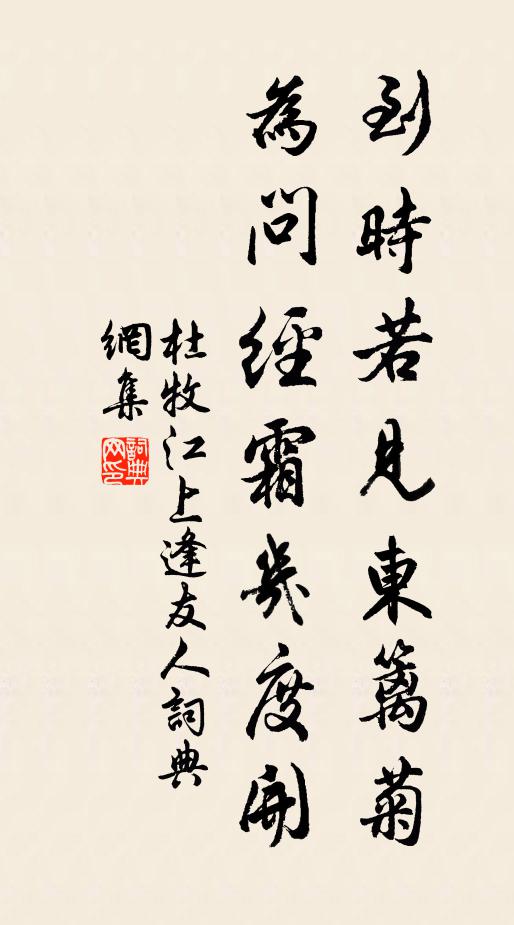 到時若見東籬菊
為問經霜幾度開
杜牧江上逢友人詞典
網集
詞典網印